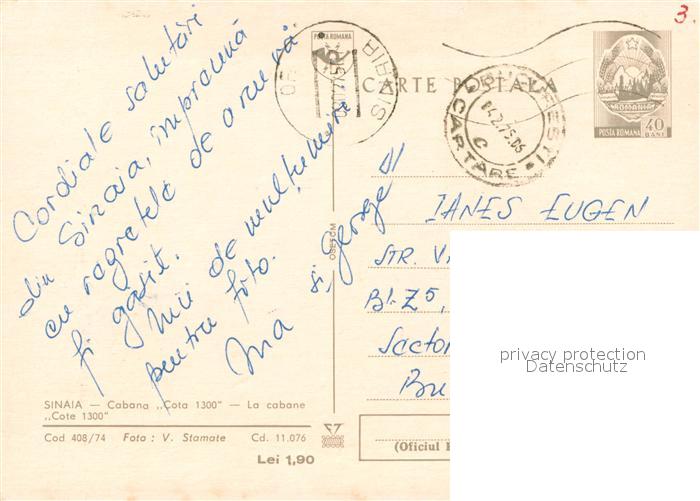 Cordiale salutări
din Sinaia, împreună
cu regretele de a nu vă
fi găsit.
Mii de mulțumiri
pentru foto.
Ina și George
SINAIA — Cabana „Cota 1300" — La cabane
„Cote 1300"
Cod 408/74 Foto : V. Stamate Cd. 11.076
Lei 1,90
POSTA ROMANA
SIBIU
CARTE POSTALA
BUCURESTI
04.2.75.06
C
CARTARE
ROMANIA
POSTA ROMANA 40 BANI
3.
IANEȘ EUGEN
STR. V
Bl. Z5,
Sector
Bu
(Oficiul
privacy protection
Datenschutz